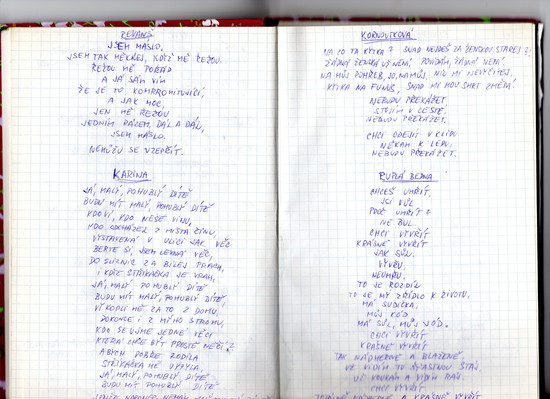 REVANŠ
JSEM MÁSLO,
JSEM TAK MĚKKEJ, KDYŽ MĚ ŘEŽOU.
ŘEŽOU MĚ POŘÁD
A JÁ SÁM VÍM
ŽE JE TO KOMPROMITUJÍCÍ
A JAK MOC,
JEN MĚ ŘEŽOU
JEDNÍM RÁZEM, DÁL A DÁL,
JSEM MÁSLO.
NEMŮŽU SE VZEPŘÍT.
KARINA
JÁ, MALÝ, POHUBLÝ DÍTĚ
BUDU MÍT MALÝ, POHUBLÝ DÍTĚ
KDO VÍ, KDO NESE VINU,
KDO ODCHÁZEL Z MÍSTA ČINU,
VYSTAVENÁ V ULICI JAK VĚC
BERTE SI, JSEM LEVNÁ VĚC,
DO SKLENIC ZA BÍLEJ PRACH,
I KDYŽ STŘÍKAČKA JE VRAH,
JÁ, MALÝ, POHUBLÝ DÍTĚ
BUDU MÍT MALÝ, POHUBLÝ DÍTĚ
VYKOPLI MĚ ZA TO Z DOMU.
DOKONCE I Z MÝHO STROMU,
KDO SE UJME JEDNÉ VĚCI
KTERÁ CHCE BÝT PROSTĚ NĚČÍ?
ABYCH DOBŘE RODILA
STŘÍKAČKA MĚ UKRYLA
JÁ, MALÝ, POHUBLÝ DÍTĚ
BUDU MÍT POHUBLÝ DÍTĚ
KORNOUTKOVÁ
NA CO TA KYTKA? SNAD NEJDEŠ ZA ŽENSKOU STAREJ?
ŽÁDNÁ ŽENSKÁ UŽ NENÍ, POVÍDÁM, ŽÁDNÁ NENÍ.
NA MŮJ POHŘEB, JO, NA MŮJ, NIC MI NEVYČÍTEJ,
KYTKA NA FUNUS, SNAD MI HOU SMET
NEBUDU PŘEKÁŽET.
STOJÍM V CESTĚ,
NEBUDU PŘEKÁŽET,
CHCI ODEJÍT V KLIDU
NĚKAM K LEPU,
NEBUDU PŘEKÁŽET.
RUPLÁ BEDNA
CHCEŠ UMŘÍT.
JSI VŮL.
PROČ UMŘÍT?
NE BUL.
CHCI VYVŘÍT
KRÁSNĚ VYVŘÍT
JAK SŮL.
VYVŘU,
NEUMŘU.
TO JE ROZDÍL
TO JE MÝ ZŘÍDLO K ŽIVOTU,
MÁ SUDIČKA,
MŮJ KÓD
MÁ SŮL, MŮJ JÓD.
CHCI VYVŘÍT
KRÁSNĚ VYVŘÍT
TAK NÁDHERNĚ A BLAŽENĚ
UŽ VIDÍM TO ŠŤASTNOU STÁJ,
UŽ KOUKÁM A VIDÍM RÁJ,
CHCI VYVŘÍT
NÁDHERNĚ A KRÁSNĚ VYVŘÍT